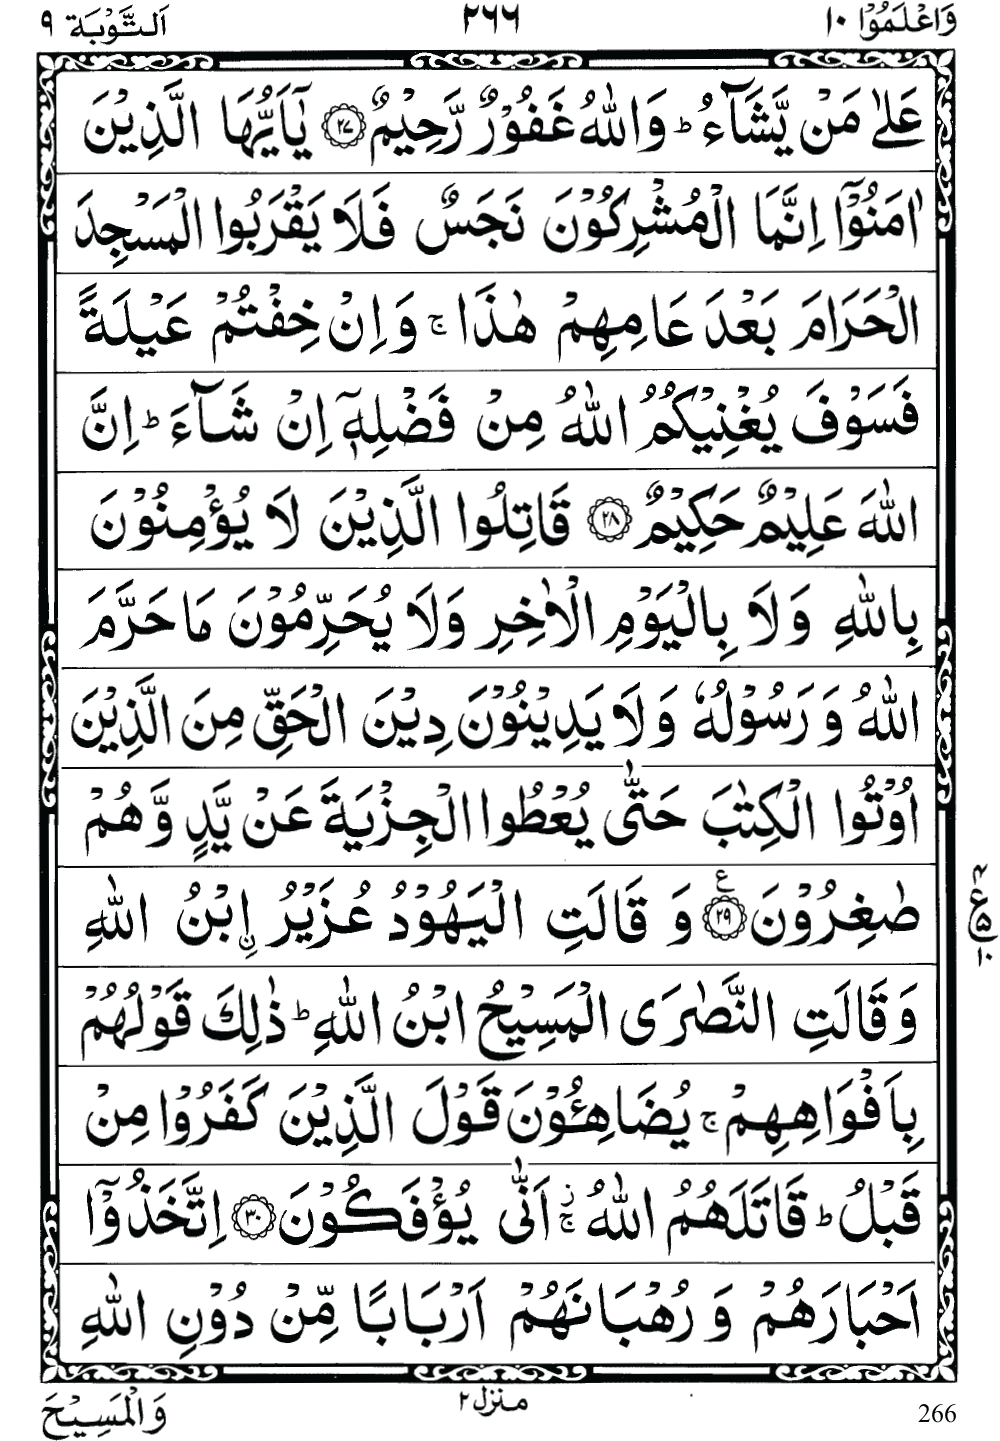 وَاعْلَمُوْۤا ۱۰ ۲۶۶ اَلتَّوْبَة ۹
عَلٰى مَنْ يَّشَآءُ ؕ وَاللّٰهُ غَفُوْرٌ رَّحِيْمٌ ﴿۲۷﴾ يٰۤاَيُّهَا الَّذِيْنَ
اٰمَنُوْۤا اِنَّمَا الْمُشْرِكُوْنَ نَجَسٌ فَلَا يَقْرَبُوا الْمَسْجِدَ
الْحَرَامَ بَعْدَ عَامِهِمْ هٰذَا ۚ وَاِنْ خِفْتُمْ عَيْلَةً
فَسَوْفَ يُغْنِيْكُمُ اللّٰهُ مِنْ فَضْلِهٖۤ اِنْ شَآءَ ؕ اِنَّ
اللّٰهَ عَلِيْمٌ حَكِيْمٌ ﴿۲۸﴾ قَاتِلُوا الَّذِيْنَ لَا يُؤْمِنُوْنَ
بِاللّٰهِ وَلَا بِالْيَوْمِ الْاٰخِرِ وَلَا يُحَرِّمُوْنَ مَا حَرَّمَ
اللّٰهُ وَرَسُوْلُهٗ وَلَا يَدِيْنُوْنَ دِيْنَ الْحَقِّ مِنَ الَّذِيْنَ
اُوْتُوا الْكِتٰبَ حَتّٰى يُعْطُوا الْجِزْيَةَ عَنْ يَّدٍ وَّهُمْ
صٰغِرُوْنَ ﴿۲۹﴾ ع وَقَالَتِ الْيَهُوْدُ عُزَيْرُ ۨابْنُ اللّٰهِ
وَقَالَتِ النَّصٰرَى الْمَسِيْحُ ابْنُ اللّٰهِ ؕ ذٰلِكَ قَوْلُهُمْ
بِاَفْوَاهِهِمْ ۚ يُضَاهِـُٔوْنَ قَوْلَ الَّذِيْنَ كَفَرُوْا مِنْ
قَبْلُ ؕ قَاتَلَهُمُ اللّٰهُ ۚ ز اَنّٰى يُؤْفَكُوْنَ ﴿۳۰﴾ اِتَّخَذُوْۤا
اَحْبَارَهُمْ وَرُهْبَانَهُمْ اَرْبَابًا مِّنْ دُوْنِ اللّٰهِ
۴
ع ۵
۱۰
منزل ۲
وَالْمَسِيْحَ
266